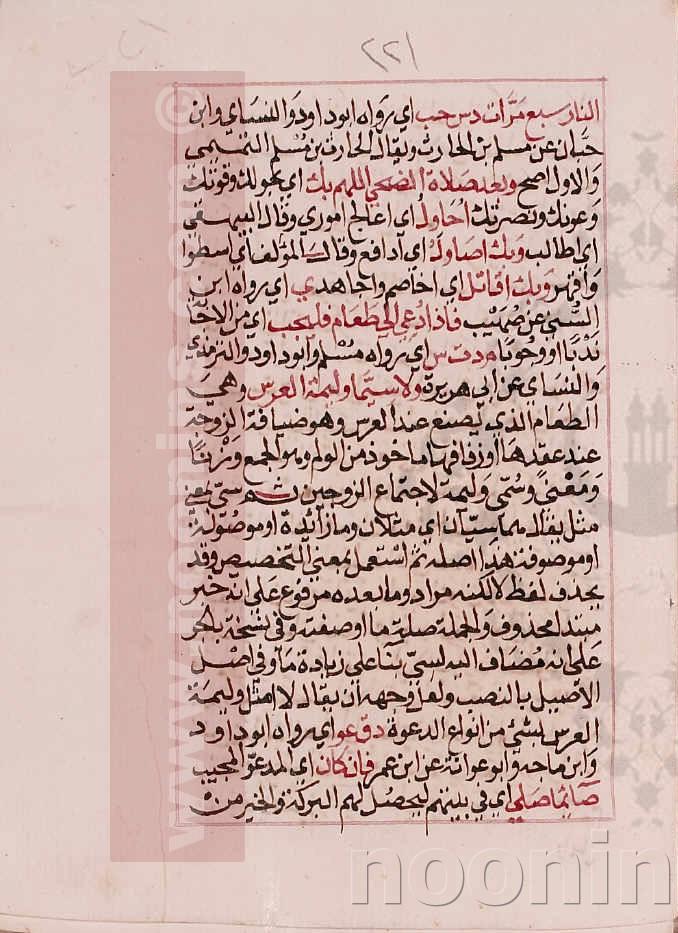 ٢٢١
النار سبع مرات دس حب اي رواه ابو داود والنساي وابن
حبان عن مسلم بن الحارث ويقال الحارث بن مسلم التميمي
والاول اصح وبعد صلاة الضحى اللهم بك اي بحولك وقوتك
وعونك ونصرتك احاول اي اعالج اموري وقال البيهقي
اي اطالب وبك اصاول اي ادافع وقال المؤلف اي اسطوا
واقهر وبك اقاتل اي اخاصم واجاهد ي اي رواه ابن
السني عن صهيب فاذا دعي الى طعام فليجب اي من الاخ
ندبا او وجوبا م دت س اي رواه مسلم وابو داود والترمذي
والنساي عن ابي هريرة ولا سيما وليمة العرس وهي
الطعام الذي يصنع عند العرس وهو ضيافة الزوجة
عند عقدها او زفافها ماخوذ من الولم وهو الجمع وزنا
ومعنى وسمي وليمة لاجتماع الزوجين ثم سي بمعنى
مثل يقال هما سيان اي مثلان وما زائدة او موصولة
او موصوفة هذا اصله ثم استعمل بمعنى التخصيص وقد
يحذف لفظ لا لكنه مراد وما بعده مرفوع على انه خبر
مبتدا محذوف والجملة صلة ما او صفته وفي نسخة بالجر
على انه مضاف اليه لسي بنا على زيادة ما وفي اصل
الاصيل بالنصب ولعل وجهه ان يقال لا امثل وليمة
العرس لشئ من انواع الدعوة دق عو اي رواه ابو داود
وابن ماجه وابو عوانة عن ابن عمر فان كان اي المدعو المجيب
صائما صلى اي في بيتهم ليحصل لهم البركة والخير من
www.noonin
noonin